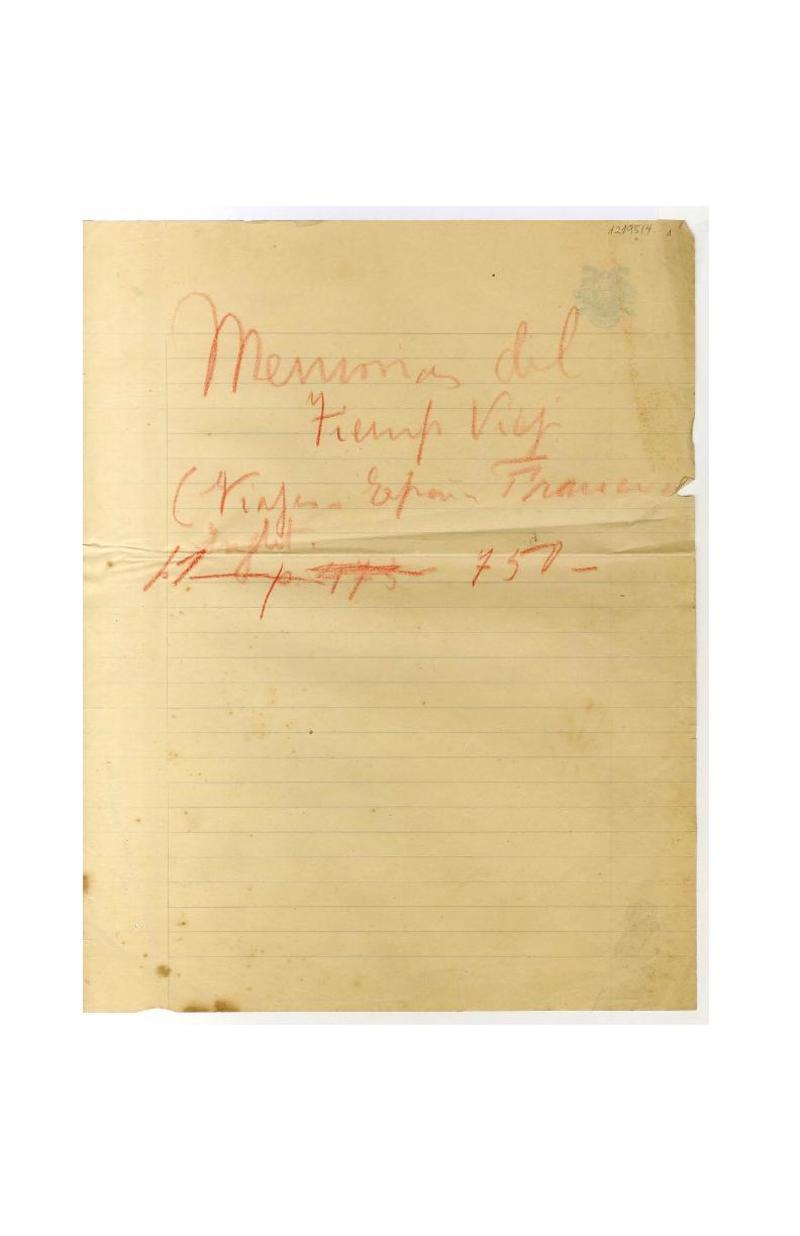 121951/4. 1
Memorias del
Tiempo Viejo
(Viajes a España Francia e
Inglat.
p. 175 750-